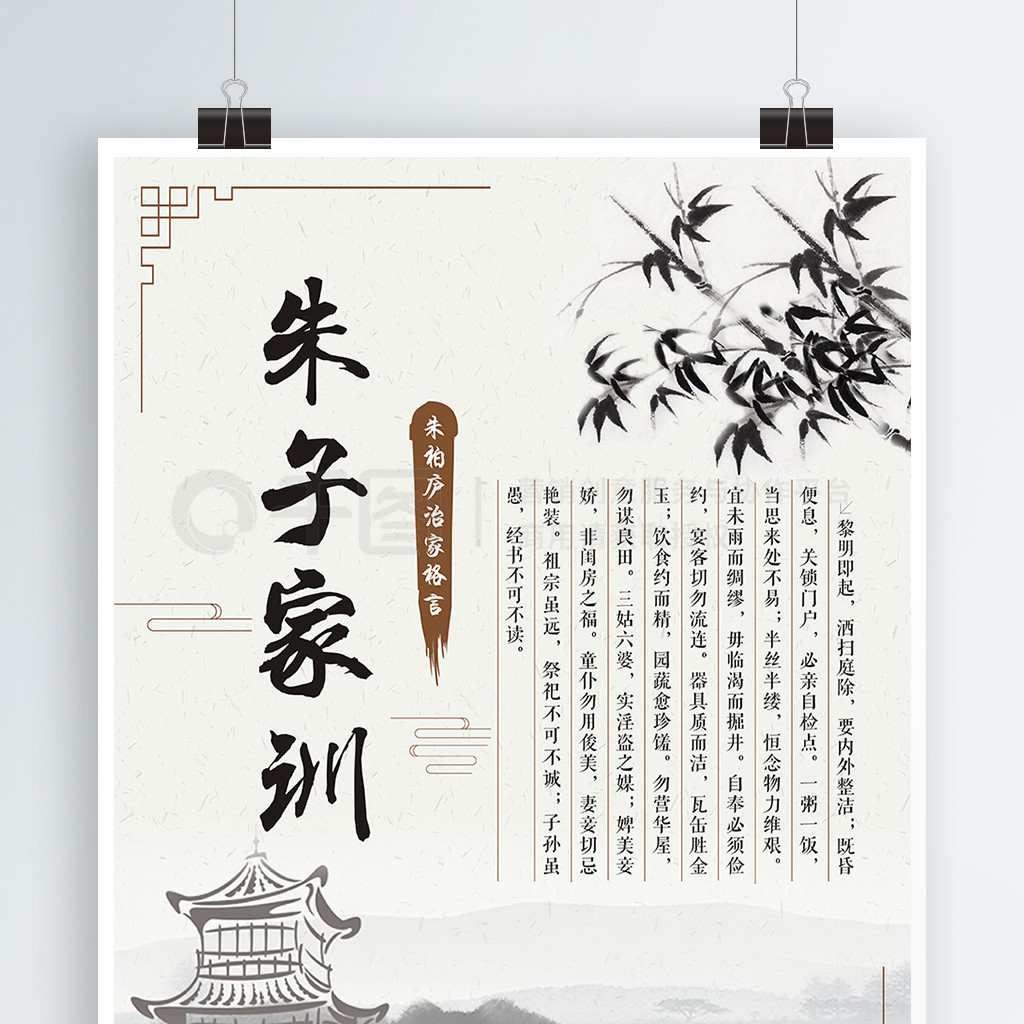 朱子家训
朱柏庐治家格言
黎明即起，洒扫庭除，要内外整洁；既昏
便息，关锁门户，必亲自检点。一粥一饭，
当思来处不易；半丝半缕，恒念物力维艰。
宜未雨而绸缪，毋临渴而掘井。自奉必须俭
约，宴客切勿流连。器具质而洁，瓦缶胜金
玉；饮食约而精，园蔬愈珍馐。勿营华屋，
勿谋良田。三姑六婆，实淫盗之媒；婢美妾
娇，非闺房之福。童仆勿用俊美，妻妾切忌
艳装。祖宗虽远，祭祀不可不诚；子孙虽
愚，经书不可不读。